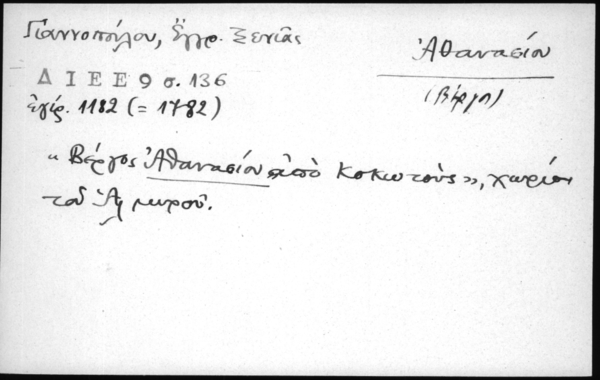 Γιαννοπούλου, Ἔγγρ. Ξενιᾶς
Ἀθανασίου
(Βέργος)
ΔΙΕΕ 9 σ. 136
ἐγίρ. 1182 (= 1782)
« Βέργος Ἀθανασίου ἀπὸ Κοκωτοὺς », χωρίον
τοῦ Ἁλμυροῦ.